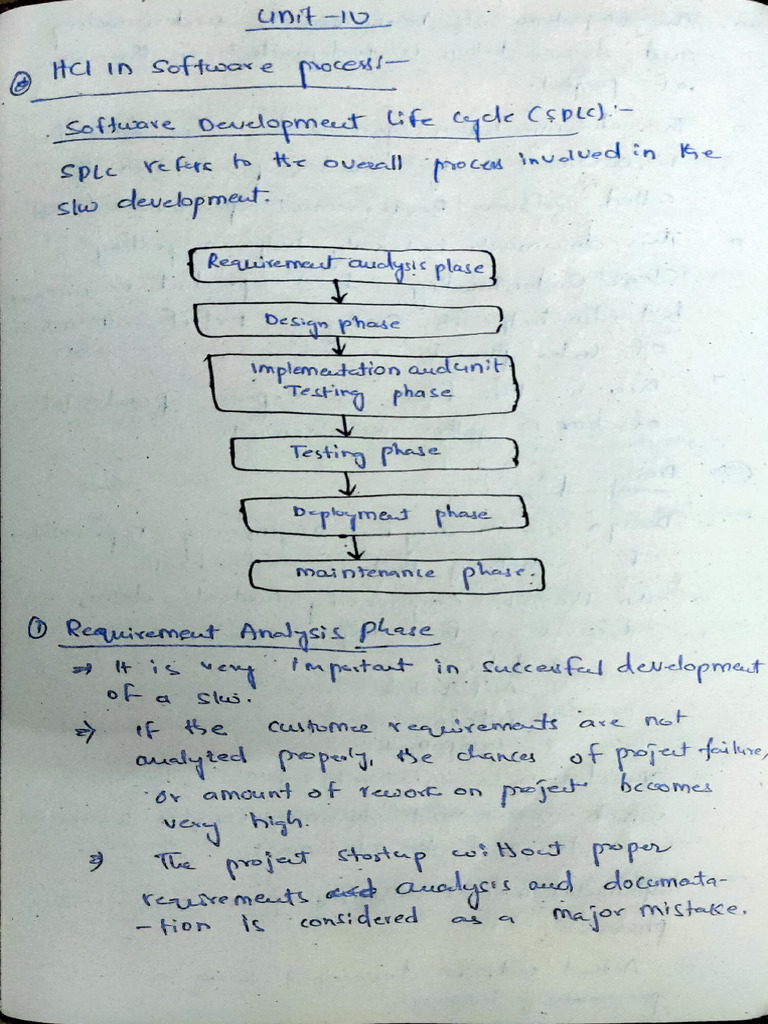 Unit-IV
HCI in Software process:-
Software Development Life Cycle (SDLC):-
SDLC refers to the overall process involved in the
s/w development.
Requirement analysis phase
Design phase
Implementation and unit
Testing phase
Testing phase
Deployment phase
Maintenance phase.
① Requirement Analysis Phase
⇒ It is very important in successful development
of a s/w.
⇒ If the customer requirements are not
analyzed properly, the chances of project failure,
or amount of rework on project becomes
very high.
⇒ The project startup without proper
requirements analysis and documata-
-tion is considered as a major mistake.